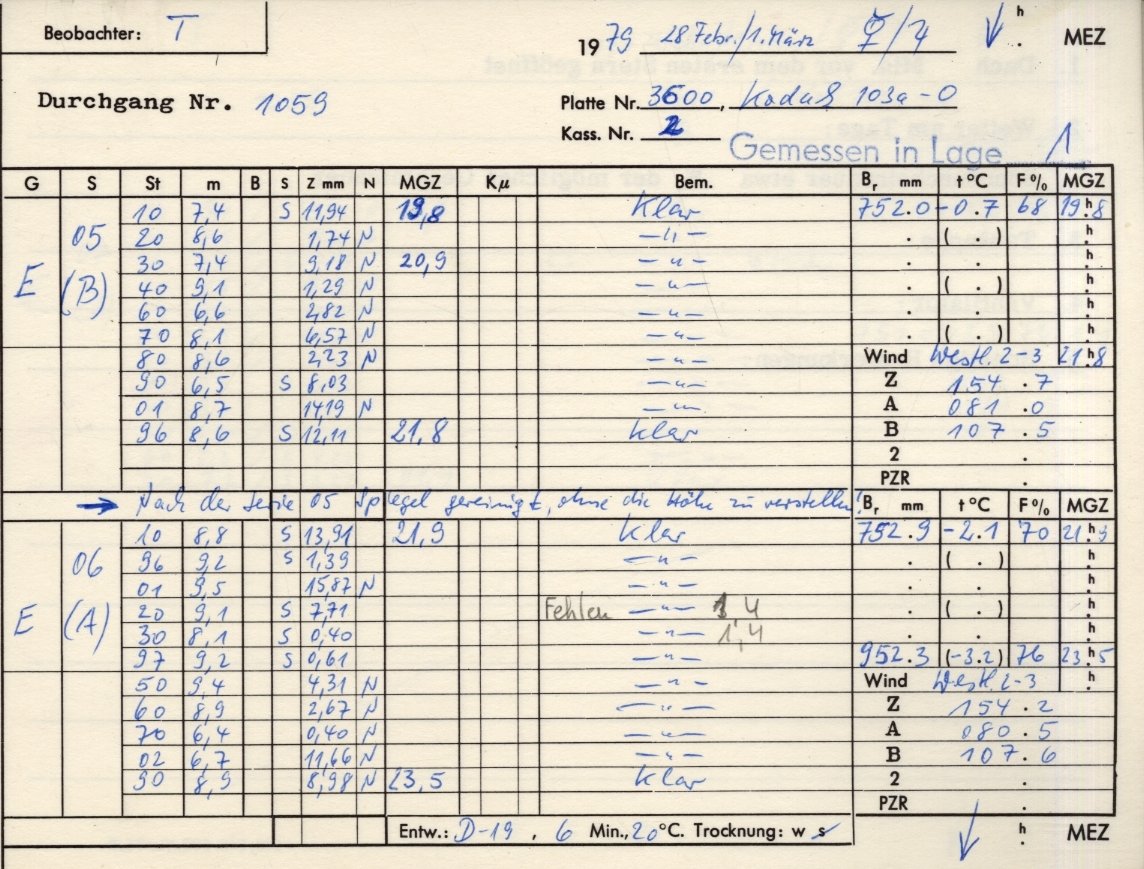 Beobachter: T
1979 28 Febr./1. März ♀/♃ h MEZ
Durchgang Nr. 1059
Platte Nr. 3600, Kodak 103a-O
Kass. Nr. 2
Gemessen in Lage 1
G S St m B S Z mm N MGZ Kμ Bem. Br mm t °C F% MGZ
10 7,4 S 11,94 19,8 Klar 752.0 -0.7 68 19.h8
05 20 8,6 1,74 N —"— . ( . ) h
30 7,4 9,18 N 20,9 —"— . . h
E (B) 40 9,1 1,29 N —"— . ( . ) h
60 6,6 2,82 N —"— . . h
70 8,1 6,57 N —"— . ( . ) h
80 8,6 2,23 N —"— Wind Westl. 2-3 21.h8
90 6,5 S 8,03 —"— Z 154.7
01 8,7 14,19 N —"— A 081.0
96 8,6 S 12,11 21,8 Klar B 107.5
2 .
PZR .
→ Nach der Serie 05 Spiegel gereinigt, ohne die Höhe zu verstellen! Br mm t °C F% MGZ
10 8,8 S 13,91 21,9 Klar 752.9 -2.1 70 21.h9
06 96 9,2 S 1,39 —"— . ( . ) h
01 9,5 15,87 N —"— . . h
20 9,1 S 7,71 Fehlen —"— 4 . ( . ) h
E (A) 30 8,1 S 0,40 —"— 1,4 . . h
97 9,2 S 0,61 —"— 952.3 (-3.2) 76 23.h5
50 9,4 4,31 N —"— Wind Westl. 2-3 h
60 8,9 2,67 N —"— Z 154.2
70 6,4 0,40 N —"— A 080.5
02 6,7 11,66 N —"— B 107.6
90 8,9 8,98 N 23,5 Klar 2 .
PZR .
Entw.: D-19, 6 Min., 20°C. Trocknung: w s h MEZ